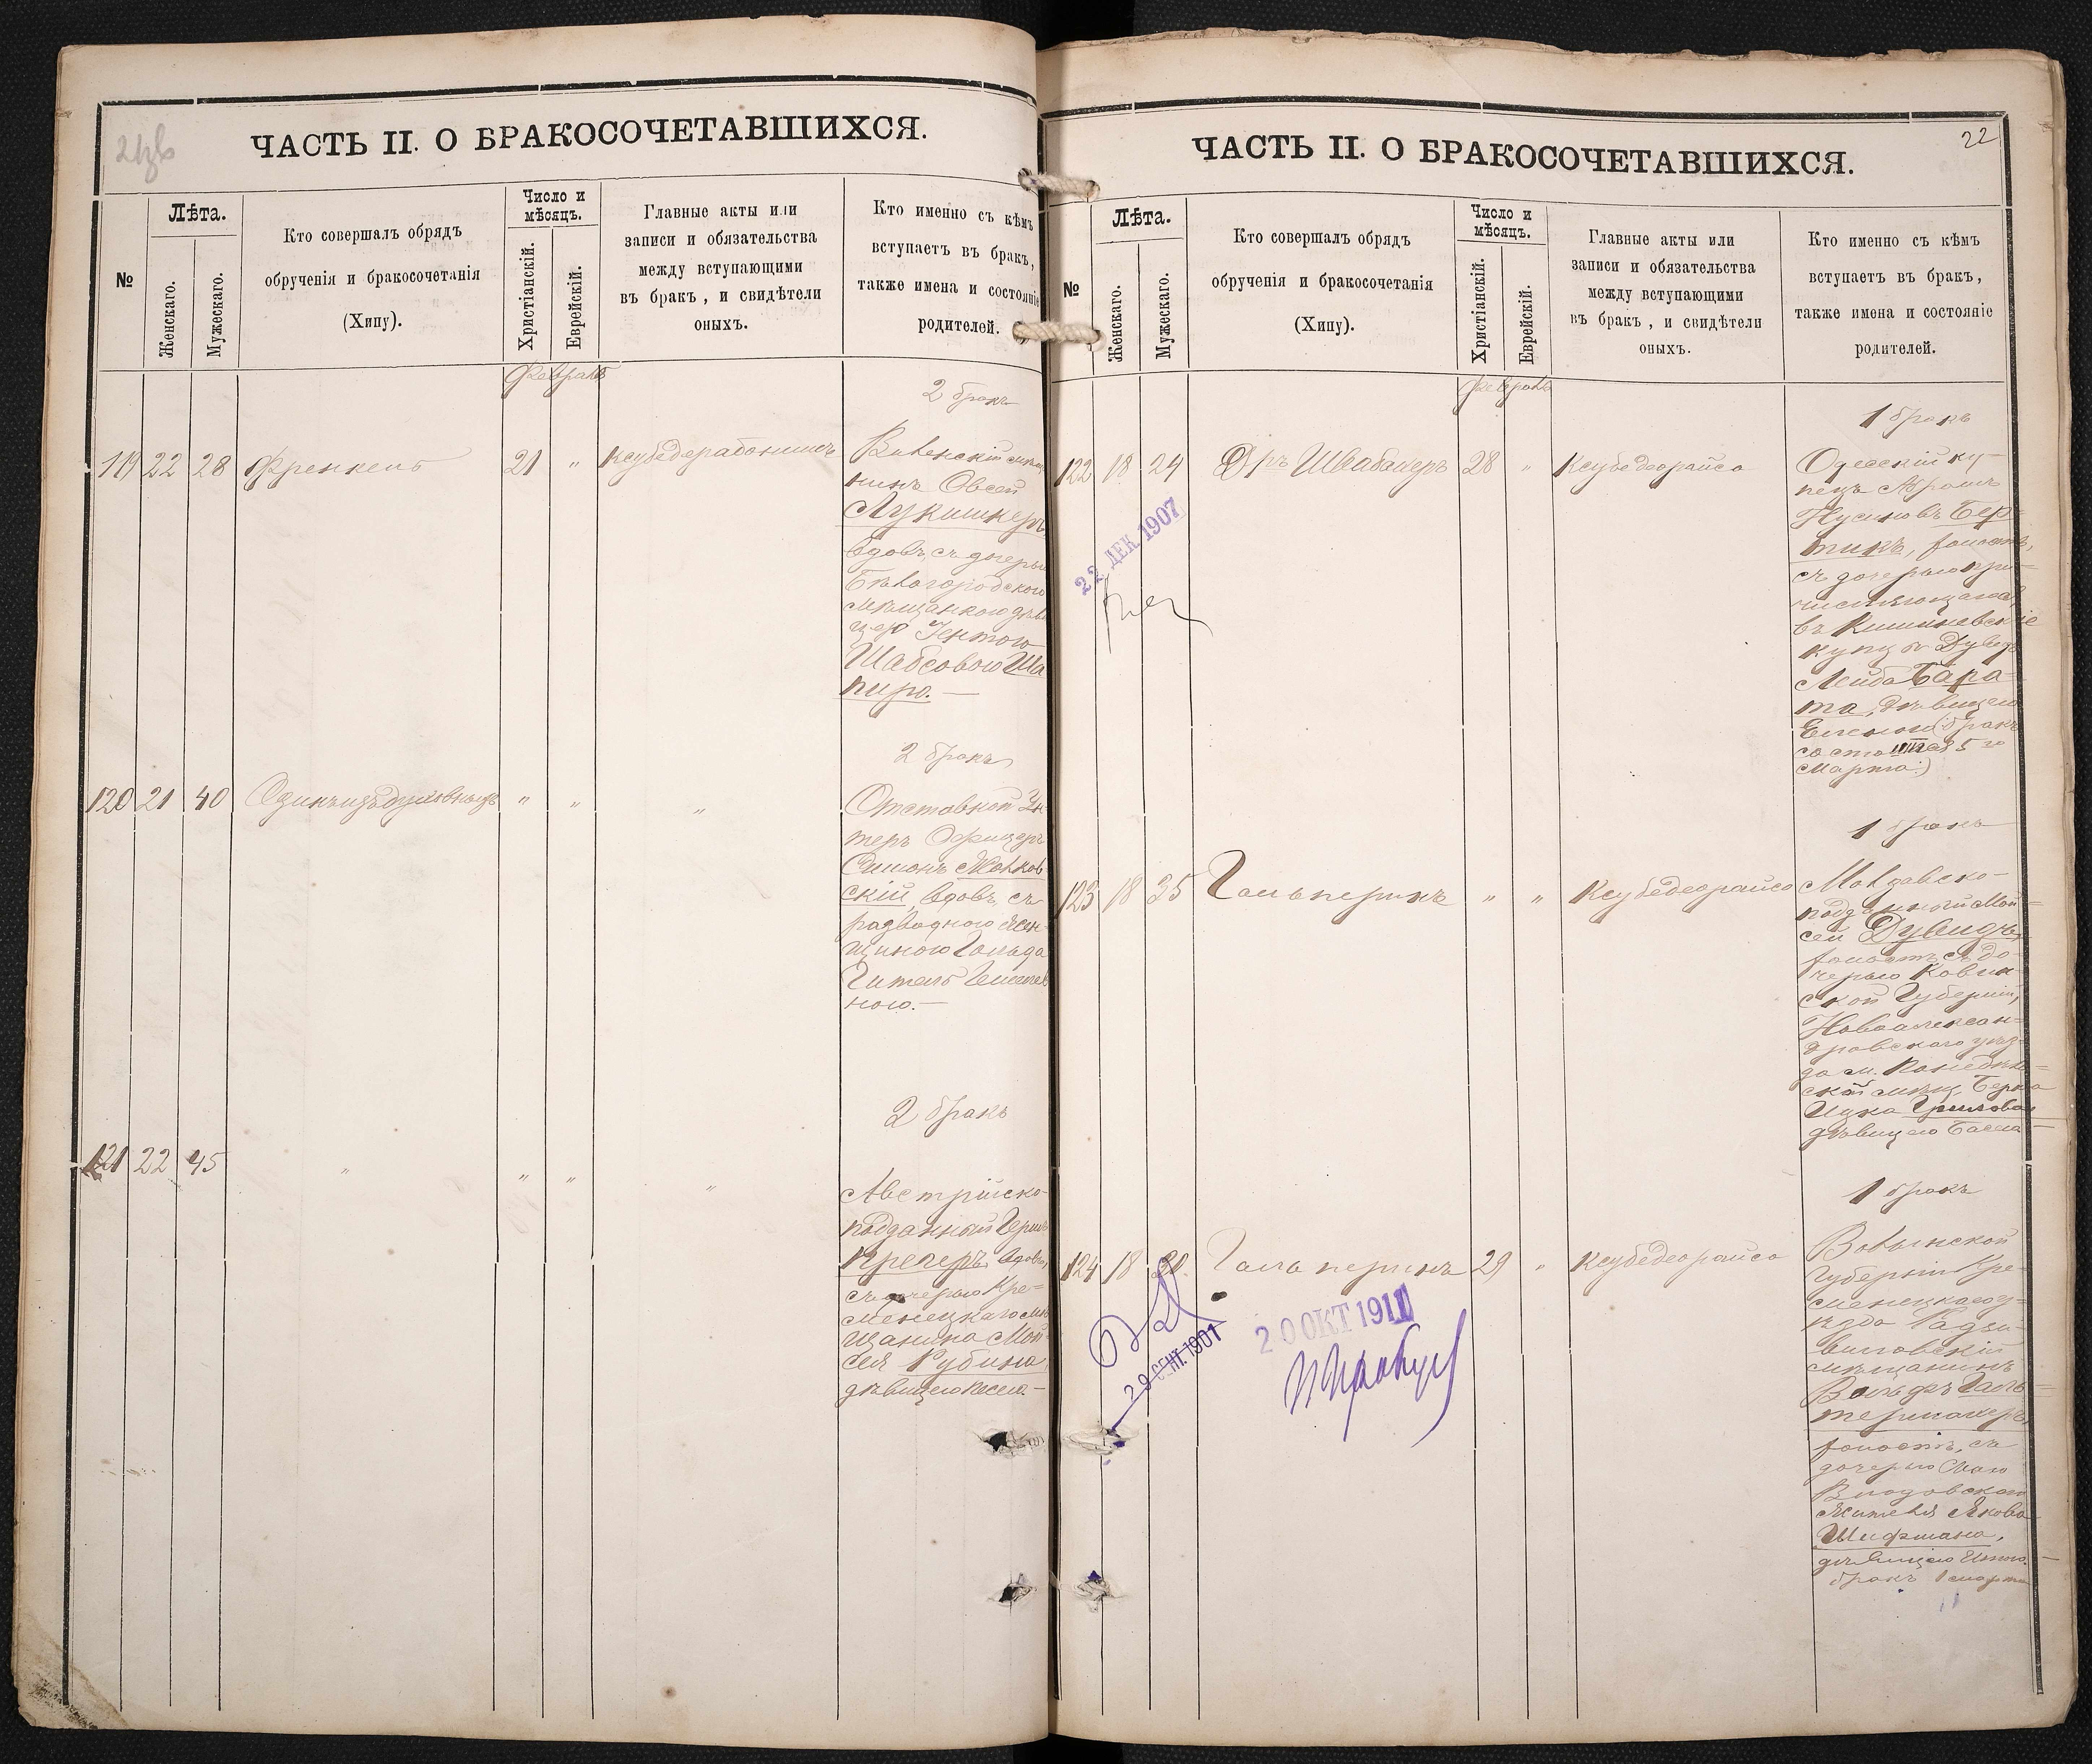 21зв
ЧАСТЬ II. О БРАКОСОЧЕТАВШИХСЯ.
№
Лѣта.
Женскаго.
Мужескаго.
Кто совершалъ обрядъ
обрученія и бракосочетанія
(Хипу).
Число и
мѣсяцъ.
Христіанскій.
Еврейскій.
Главные акты или
записи и обязательства
между вступающими
въ бракъ, и свидѣтели
оныхъ.
Кто именно съ кѣмъ
вступаетъ въ бракъ,
также имена и состояніе
родителей.
Февраль
2 бракъ
119 22 28 Френкель 21 "
Виленскій
нинъ Овсей
Лукишкеръ
вдовъ, съ дочерью
Бѣлогородского
цею Гентою
Шабсовою Ша
пиро. —
2 бракъ
120 21 40 " " "
Отставной Ун-
теръ Офицеръ
Симонъ
скій, вдовъ, съ
разводною жен-
щиною Гольда
Гитель
ною. —
2 бракъ
121 22 45 " " " "
Австрійско-
подданный Герш
Крегеръ, вдовъ,
съ дочерью Кре-
менецкаго мѣ
щанина Мой
сея Рубина,
дѣвицею Песею. —
22
ЧАСТЬ II. О БРАКОСОЧЕТАВШИХСЯ.
№
Лѣта.
Женскаго.
Мужескаго.
Кто совершалъ обрядъ
обрученія и бракосочетанія
(Хипу).
Число и
мѣсяцъ.
Христіанскій.
Еврейскій.
Главные акты или
записи и обязательства
между вступающими
въ бракъ, и свидѣтели
оныхъ.
Кто именно съ кѣмъ
вступаетъ въ бракъ,
также имена и состояніе
родителей.
Февраль
1 бракъ
122 18 24 Дръ Швабахеръ 28 " Ксубедеорайсо
Одесскій ку-
пецъ Абрамъ
Нусимовъ Бер-
тикъ, холостъ,
съ дочерью при-
числяющагося
въ Кишиневскіе
купцы Дувидъ
Лейба Бара-
та, дѣвицею
Еленою (бракъ
состоится 5 го
Марта)
22 ДЕК. 1907
1 бракъ
123 18 35 Гальперинъ " " Ксубедеорайсо
Молдавско-
подданный Мой-
сей Дувидъ,
холостъ, съ до-
черью Ковен-
ской Губерніи,
Новоалексан-
дровскаго уѣз-
да м.
ской мѣщ. Берка
Ицка
дѣвицею Басею —
1 бракъ
124 18 30 Гальперинъ 29 " Ксубедеорайсо
Волынской
Губерніи Кре-
менецкаго у-
ѣзда Радзи-
виловскій
мѣщанинъ
Вольфъ Галь-
холостъ, съ
дочерью
Влодовского
жителя Якова
Шифмана,
дѣвицею
бракъ 1 марта
29 СЕНТ. 1901
20 ОКТ 1911